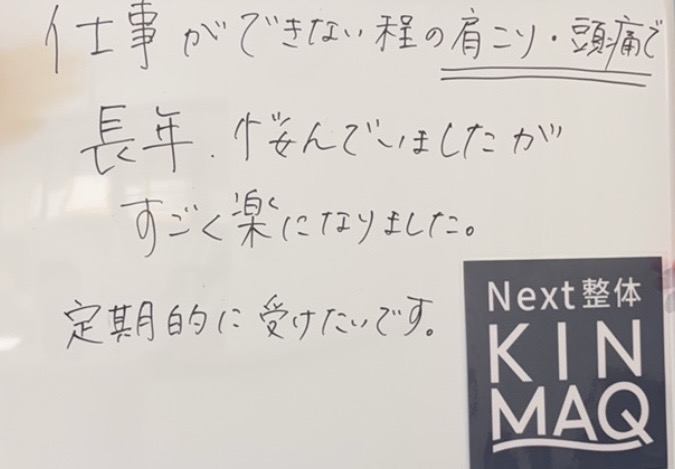 仕事ができない程の肩こり・頭痛で
長年、悩んでいましたが
すごく楽になりました。
定期的に受けたいです。
Next整体
KIN
MAQ